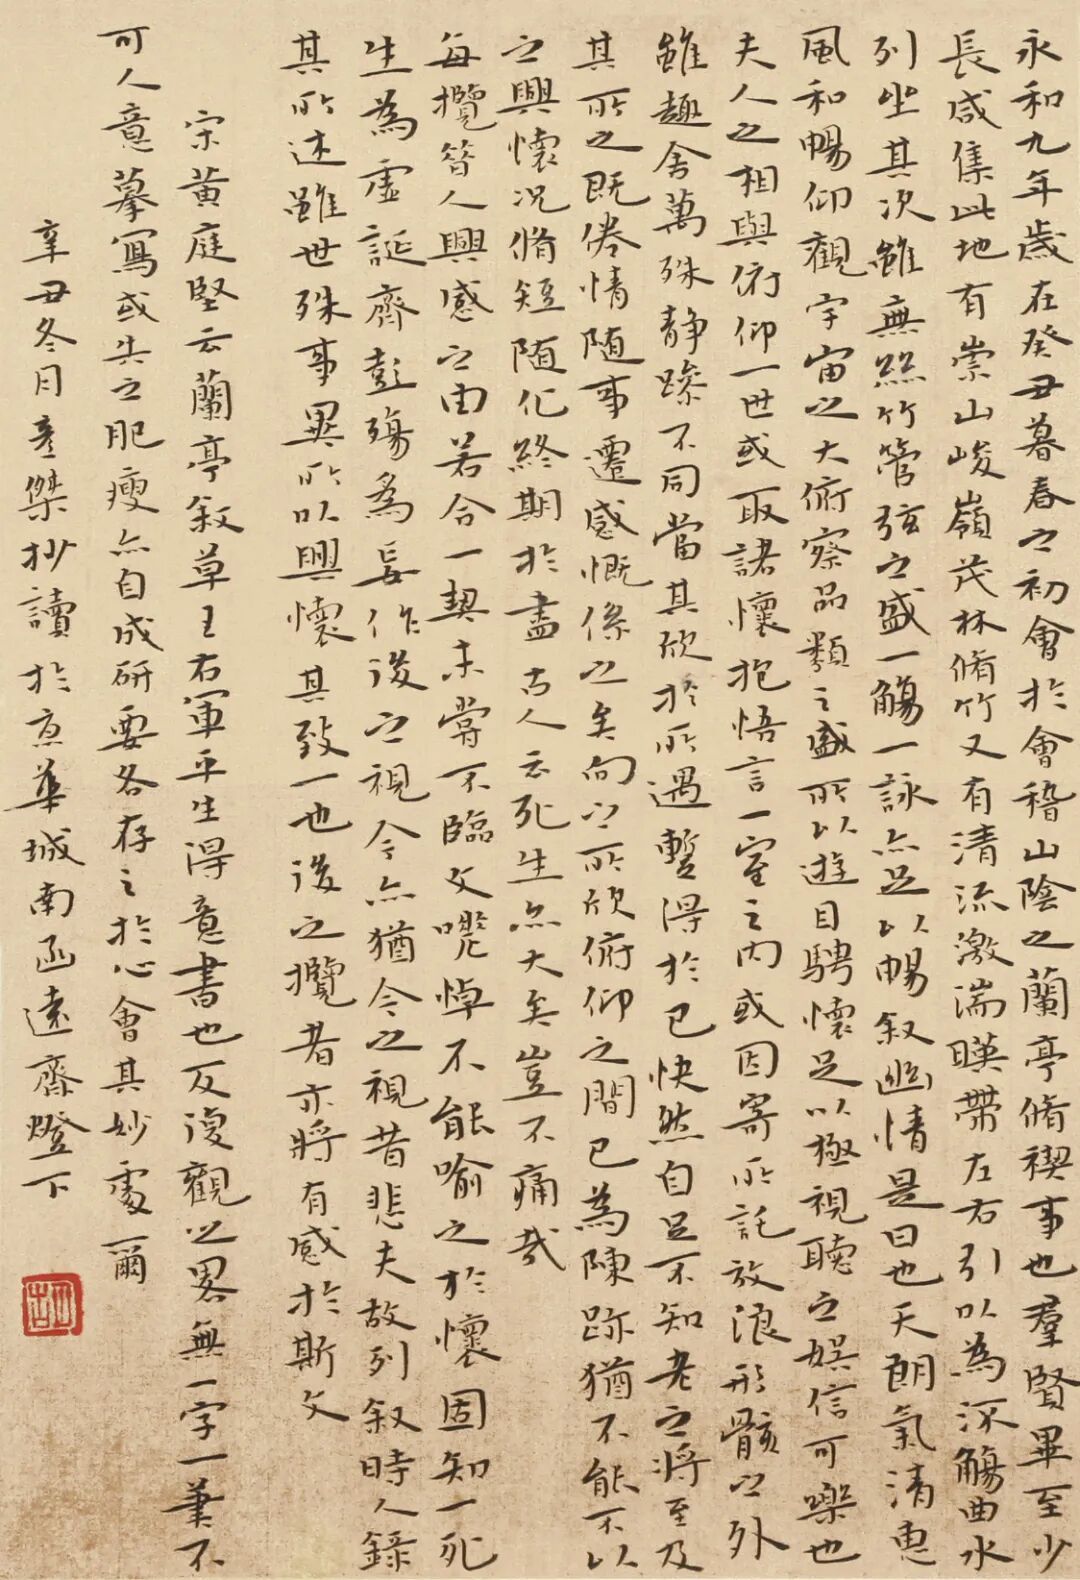 永和九年歲在癸丑暮春之初會於會稽山陰之蘭亭脩禊事也羣賢畢至少
長咸集此地有崇山峻嶺茂林脩竹又有清流激湍暎帶左右引以為流觴曲水
列坐其次雖無絲竹管弦之盛一觴一詠亦足以暢叙幽情是日也天朗氣清惠
風和暢仰觀宇宙之大俯察品類之盛所以遊目騁懷足以極視聽之娛信可樂也
夫人之相與俯仰一世或取諸懷抱悟言一室之內或因寄所託放浪形骸之外
雖趣舍萬殊静躁不同當其欣於所遇暫得於己快然自足不知老之將至及
其所之既倦情随事遷感慨係之矣向之所欣俯仰之間已為陳跡猶不能不以
之興懷況脩短随化終期於盡古人云死生亦大矣豈不痛哉
每攬昔人興感之由若合一契未嘗不臨文嗟悼不能喻之於懷固知一死
生為虛誕齊彭殤為妄作後之視今亦猶今之視昔悲夫故列叙時人錄
其所述雖世殊事異所以興懷其致一也後之攬者亦將有感於斯文
宋黄庭堅云蘭亭叙草王右軍平生得意書也反復觀之畧無一字一筆不
可人意摹寫或失之肥瘦亦自成研要各存之於心會其妙處爾
辛丑冬月彥傑抄讀於京華城南函遠齋燈下